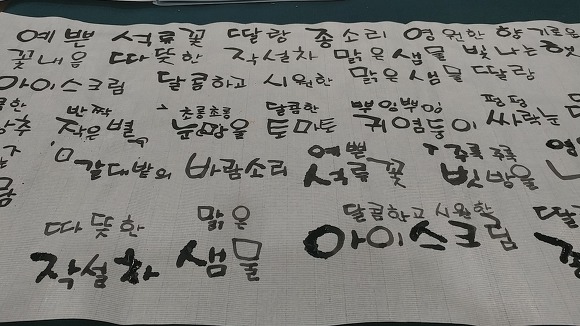 예쁜 석류꽃 딸랑 종소리 영원한 향기로운
꽃내음 따뜻한 작설차 맑은 샘물 빛나는
아이스크림 달콤하고 시원한 맑은 샘물 딸랑
반짝 초롱초롱 달콤한 뿌잉뿌잉 펑펑
작은별 눈망울 토마토 귀염둥이 싸락눈
갈대밭의 바람소리
예쁜 주룩주룩
석류꽃 빗방울
따뜻한 맑은 달콤하고 시원한
작설차 샘물 아이스크림